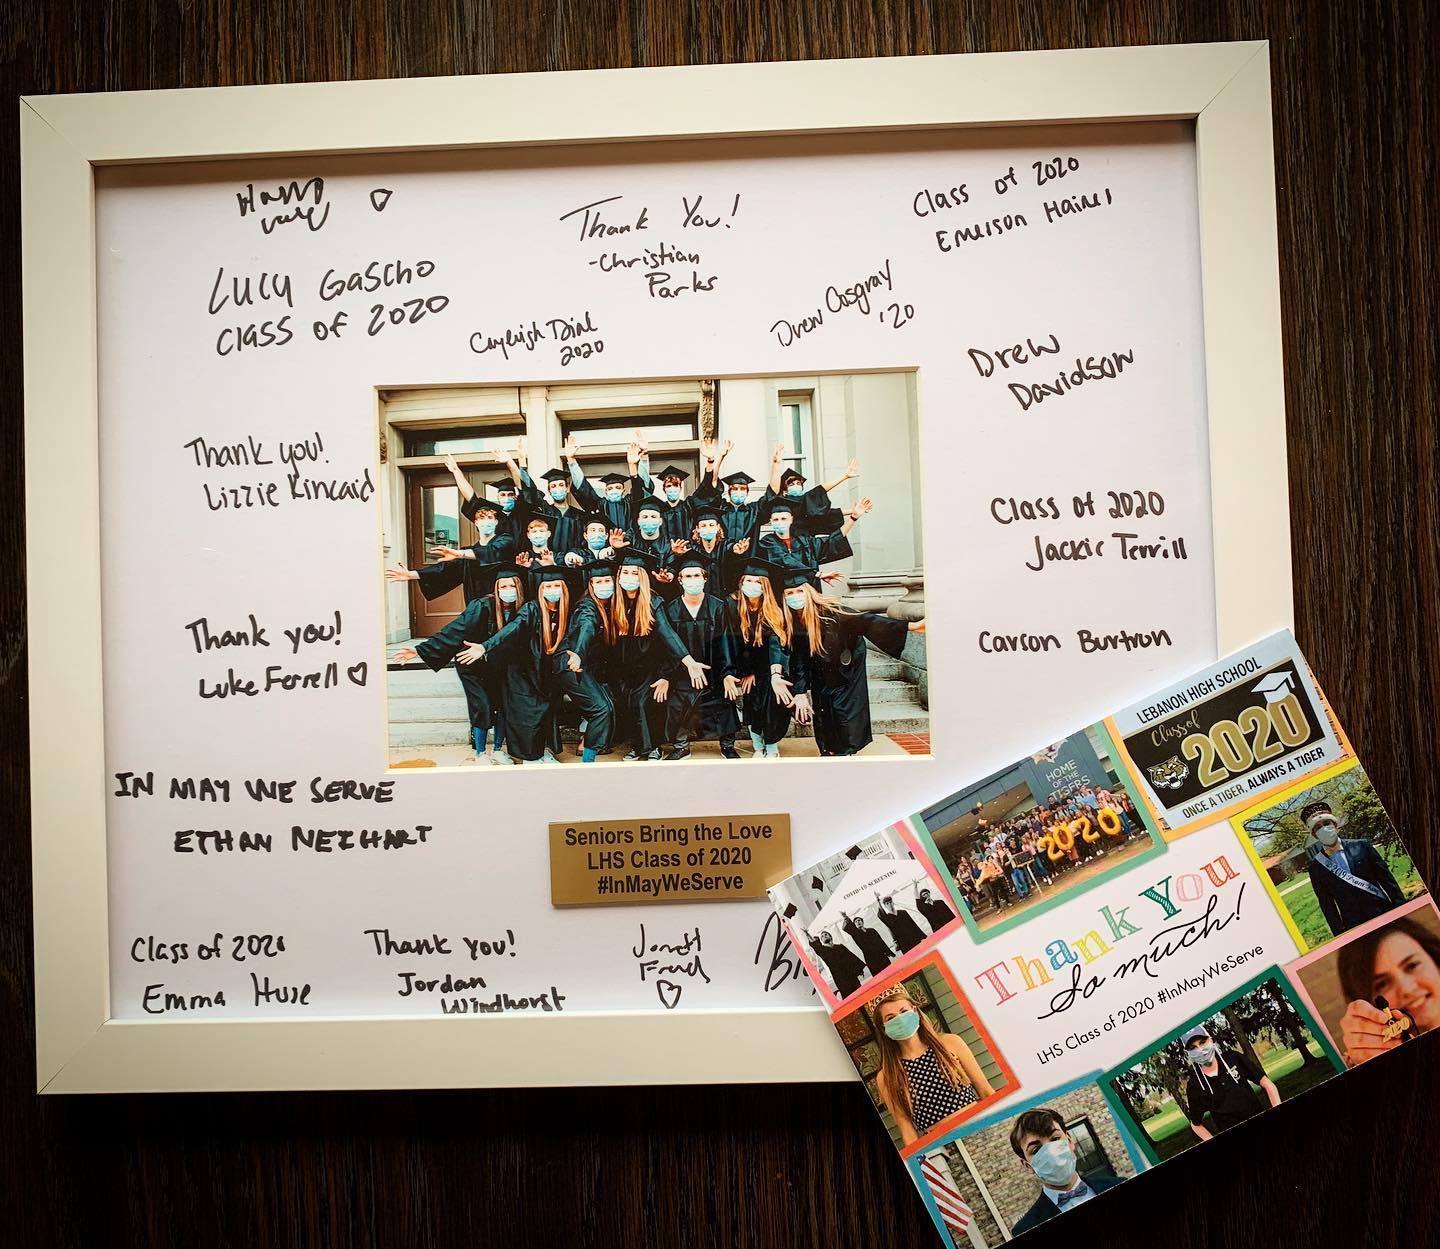 LUCY GASCHO
CLASS OF 2020
Thank You!
-Christian
Parks
Class of 2020
Emerson Haines
Cayleigh Dial
2020
Drew Cosgray
'20
Drew
Davidson
Thank you!
Lizzie Kincaid
Class of 2020
Jackie Terrill
Thank you!
Luke Ferrell
Carson Burtron
IN MAY WE SERVE
ETHAN NEIHART
Seniors Bring the Love
LHS Class of 2020
#InMayWeServe
Class of 2020
Emma Huse
Thank you!
Jordan
Windhorst
LEBANON HIGH SCHOOL
Class of
2020
ONCE A TIGER, ALWAYS A TIGER
HOME
OF THE
TIGERS
2020
COVID-19 SCREENING
Thank You
So much!
LHS Class of 2020 #InMayWeServe
2020